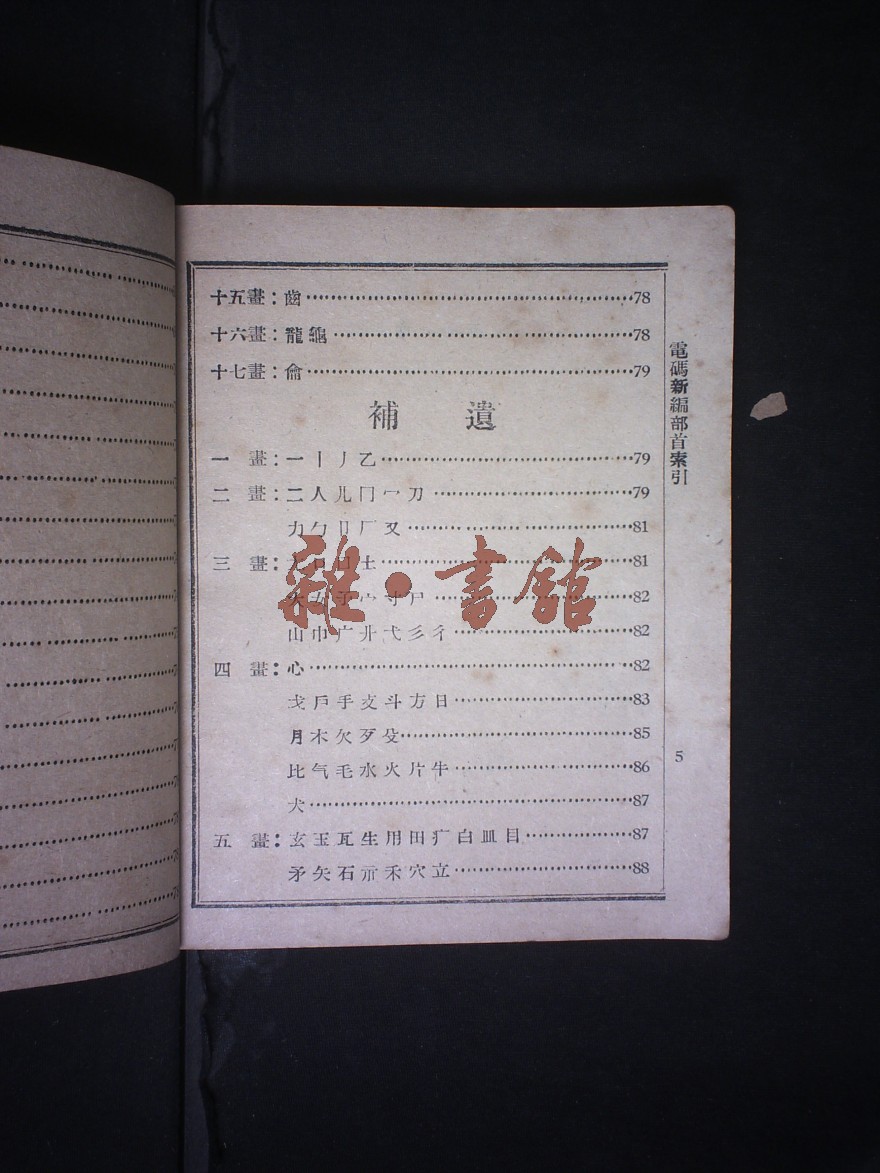 十五畫：齒……78
十六畫：龍龜……78
十七畫：龠……79
補 遺
一 畫：一丨丿乙……79
二 畫：二人儿冂冖刀……79
力勹卩厂又……81
三 畫：土……81
大女子宀寸尸……82
山巾广廾弋彡彳……82
四 畫：心……82
戈戶手支斗方日……83
月木欠歹殳……85
比气毛水火片牛……86
犬……87
五 畫：玄玉瓦生用田疒白皿目……87
矛矢石示禾穴立……88
電碼新編部首索引
5
雜·書館